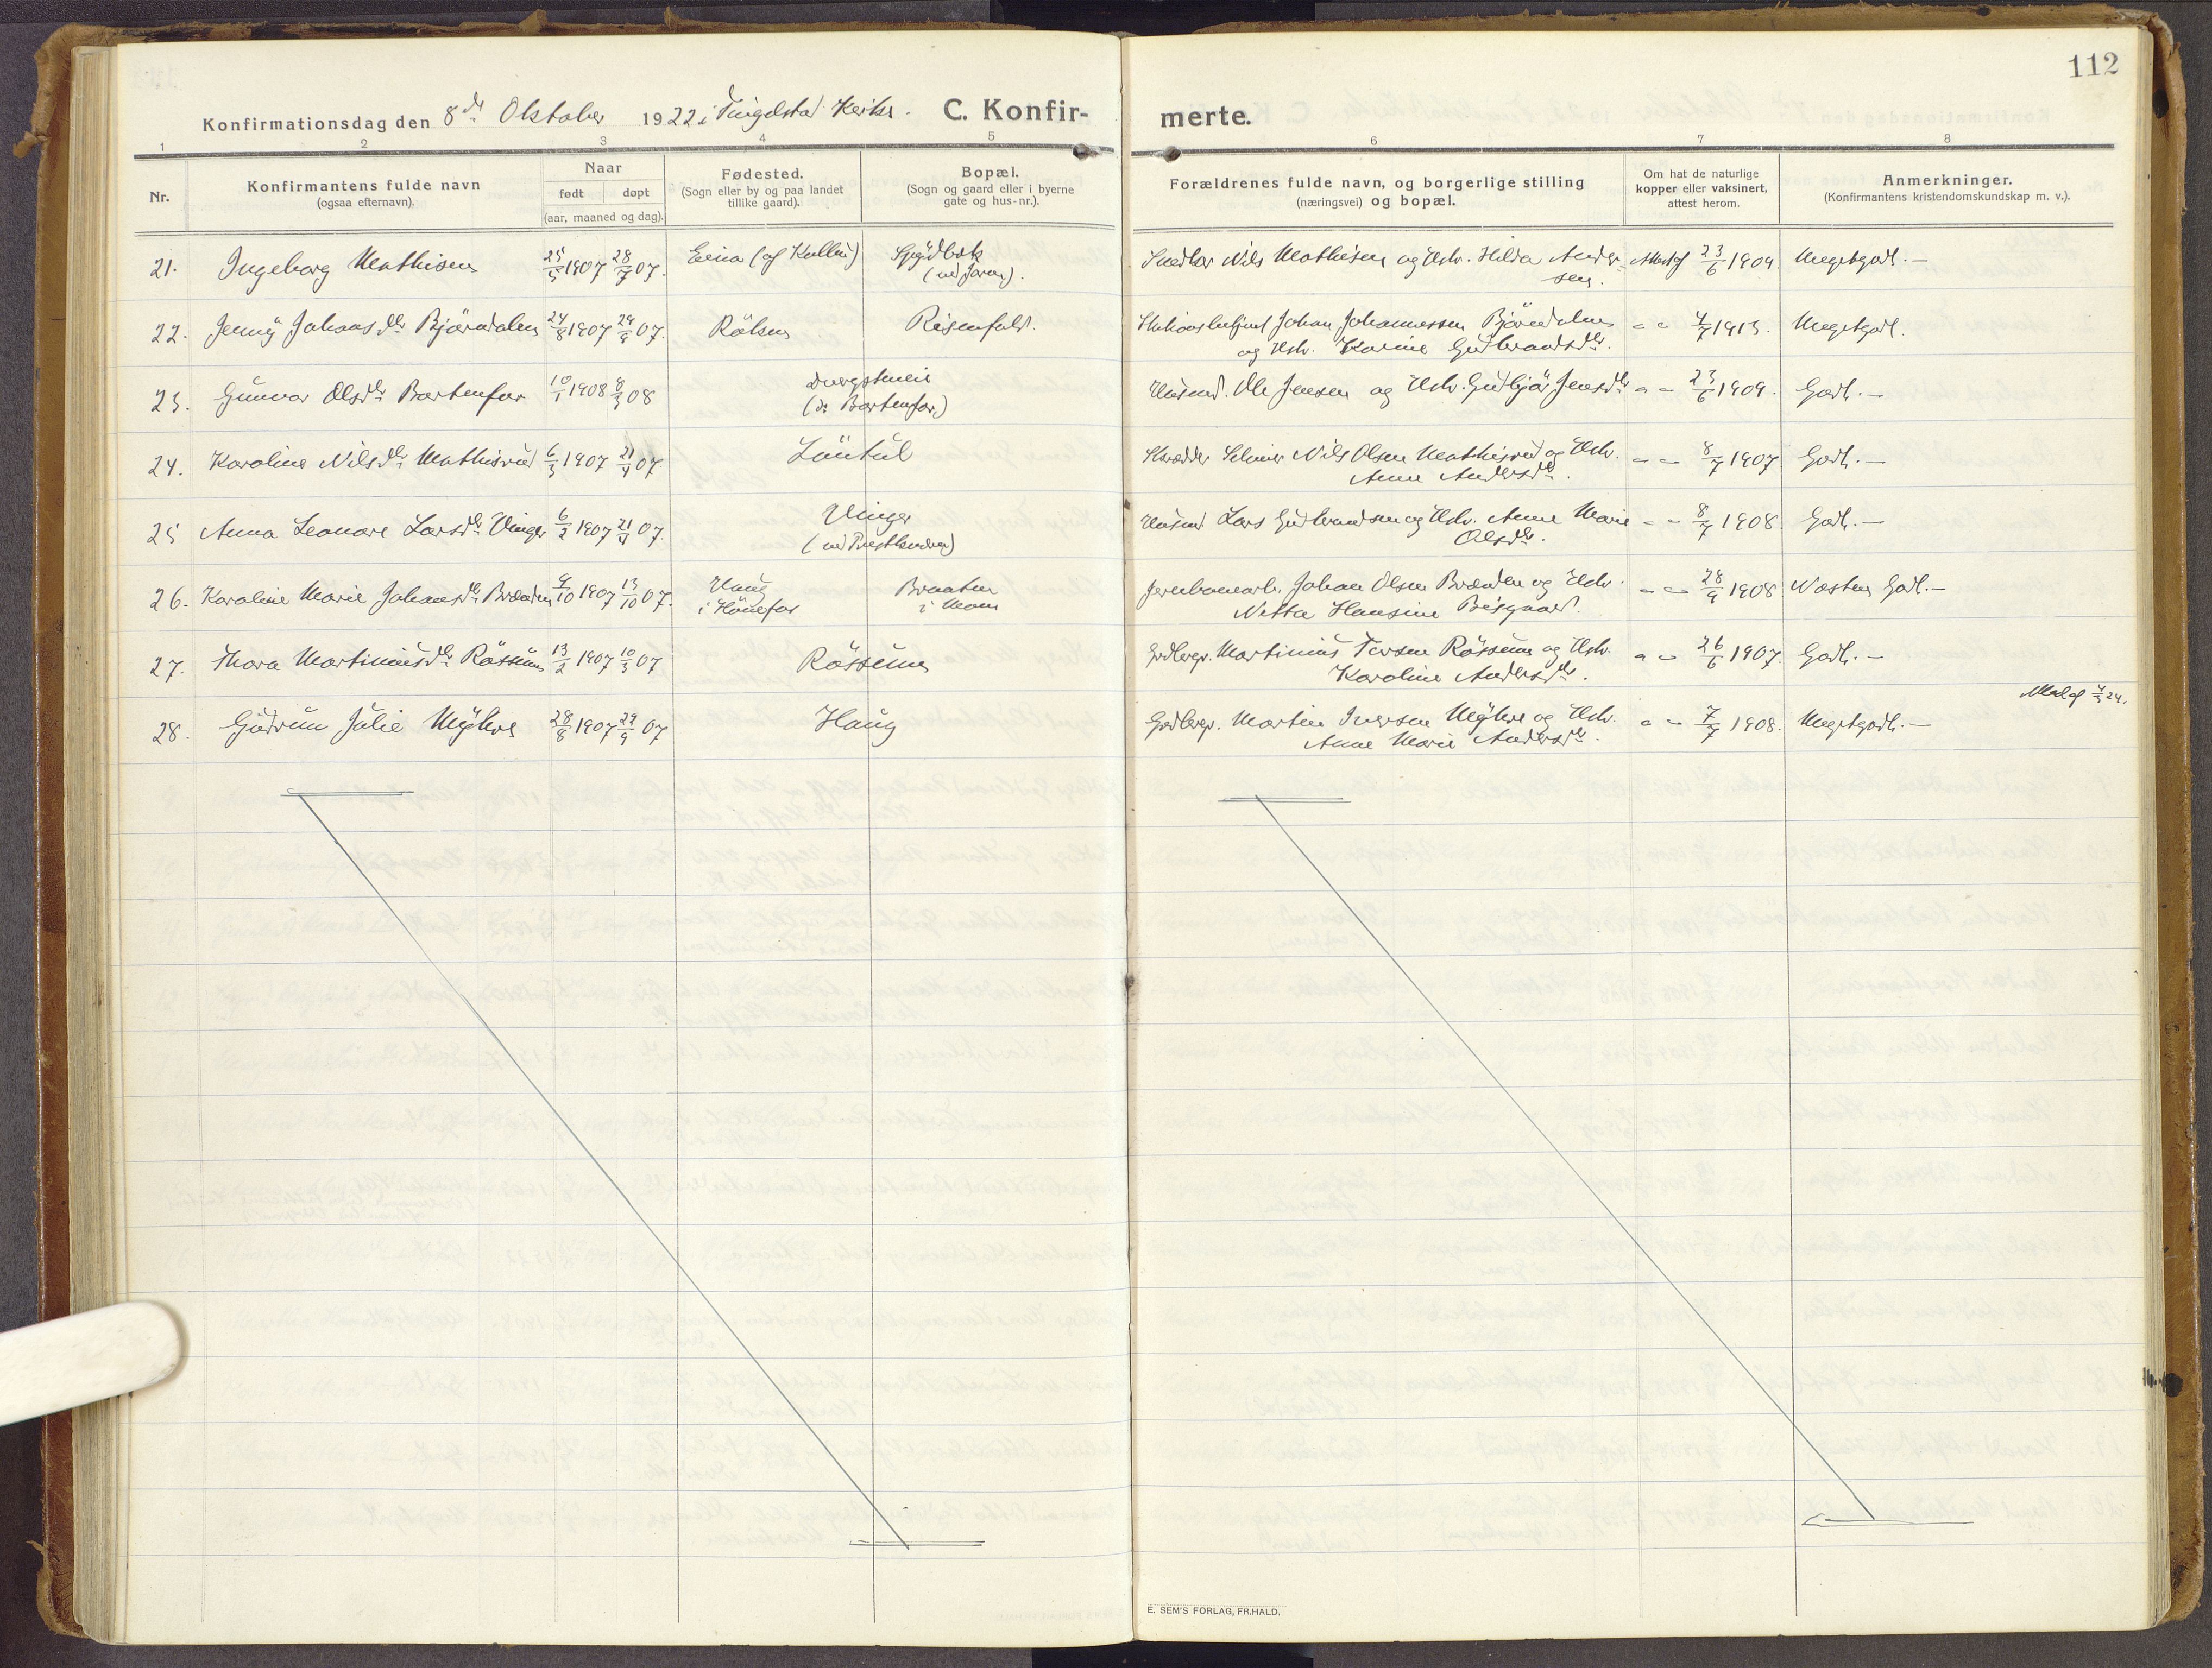 112
Konfirmationsdag den 8de Oktober 1922 i Tingelstad Kirke. C. Konfirmerte.
1 2 3 4 5 6 7 8
Nr.
Konfirmantens fulde navn
(ogsaa efternavn).
Naar
født døpt
(aar, maaned og dag).
Fødested.
(Sogn eller by og paa landet
tillike gaard).
Bopæl.
(Sogn og gaard eller i byerne
gate og hus-nr.).
Forældrenes fulde navn, og borgerlige stilling
(næringsvei) og bopæl.
Om hat de naturlige
kopper eller vaksinert,
attest herom.
Anmerkninger.
(Konfirmantens kristendomskundskap m. v.).
21. Ingeborg Mathisen 25/5 1907 28/7 07. Eina (af Kolbu) Snedker Nils Mathisen og Hstr. Hilda Ander-
sen. Attest af 23/6 1909. Megetgodt.—
22. Jenny Johansdtr Bjørndalen 24/8 1907 29/9 07. Raaken Risenfald. Johan Johannessen Bjørndalen
og Hstr. Karine Gudbrandsdtr. " " 4/7 1913. Megetgodt.
23. Gunvor Olsdtr Bartenfor 10/1 1908 8/3 08 Dvergsteneie
(Bartenfor) Husmd. Ole Jensen og Hstr. Gudbjør Jensdtr " " 23/6 1909. Godt.—
24. Karoline Nilsdtr Mathisrud 6/3 1907 21/4 07 Skrædder Nils Olsen Mathisrud og Hstr.
Anne Andersdtr. " " 8/7 1907 Godt.—
25 Anna Leonore Larsdtr Vinger 6/2 1907 21/4 07. Vinger
Husmd Lars Gudbrandsen og Hstr. Anne Marie
Olsdtr. " " 8/7 1908. Godt.—
26. Karoline Marie Johansdtr Brænden 9/10 1907 13/10 07. Haug
i Hønefos Braaten
i Moen Jernbanearb. Johan Olsen Brænden og Hstr.
Netta Hansine Bisgaard. " " 28/9 1908 Næsten Godt.—
27. Thora Martiniusdtr Røssum 13/2 1907 10/3 07 Røssum Grdbrgr. Martinius Torsen Røssum og Hstr.
Karoline Andersdtr. " " 26/6 1907. Godt.—
28. Gudrun Julie Myhre 28/8 1907 29/9 07 Haug Grdbrgr. Martin Iversen Myhre og Hstr.
Anne Marie Andersdtr. " " 7/7 1908. Megetgodt.—
E. SEM'S FORLAG, FR.HALD.